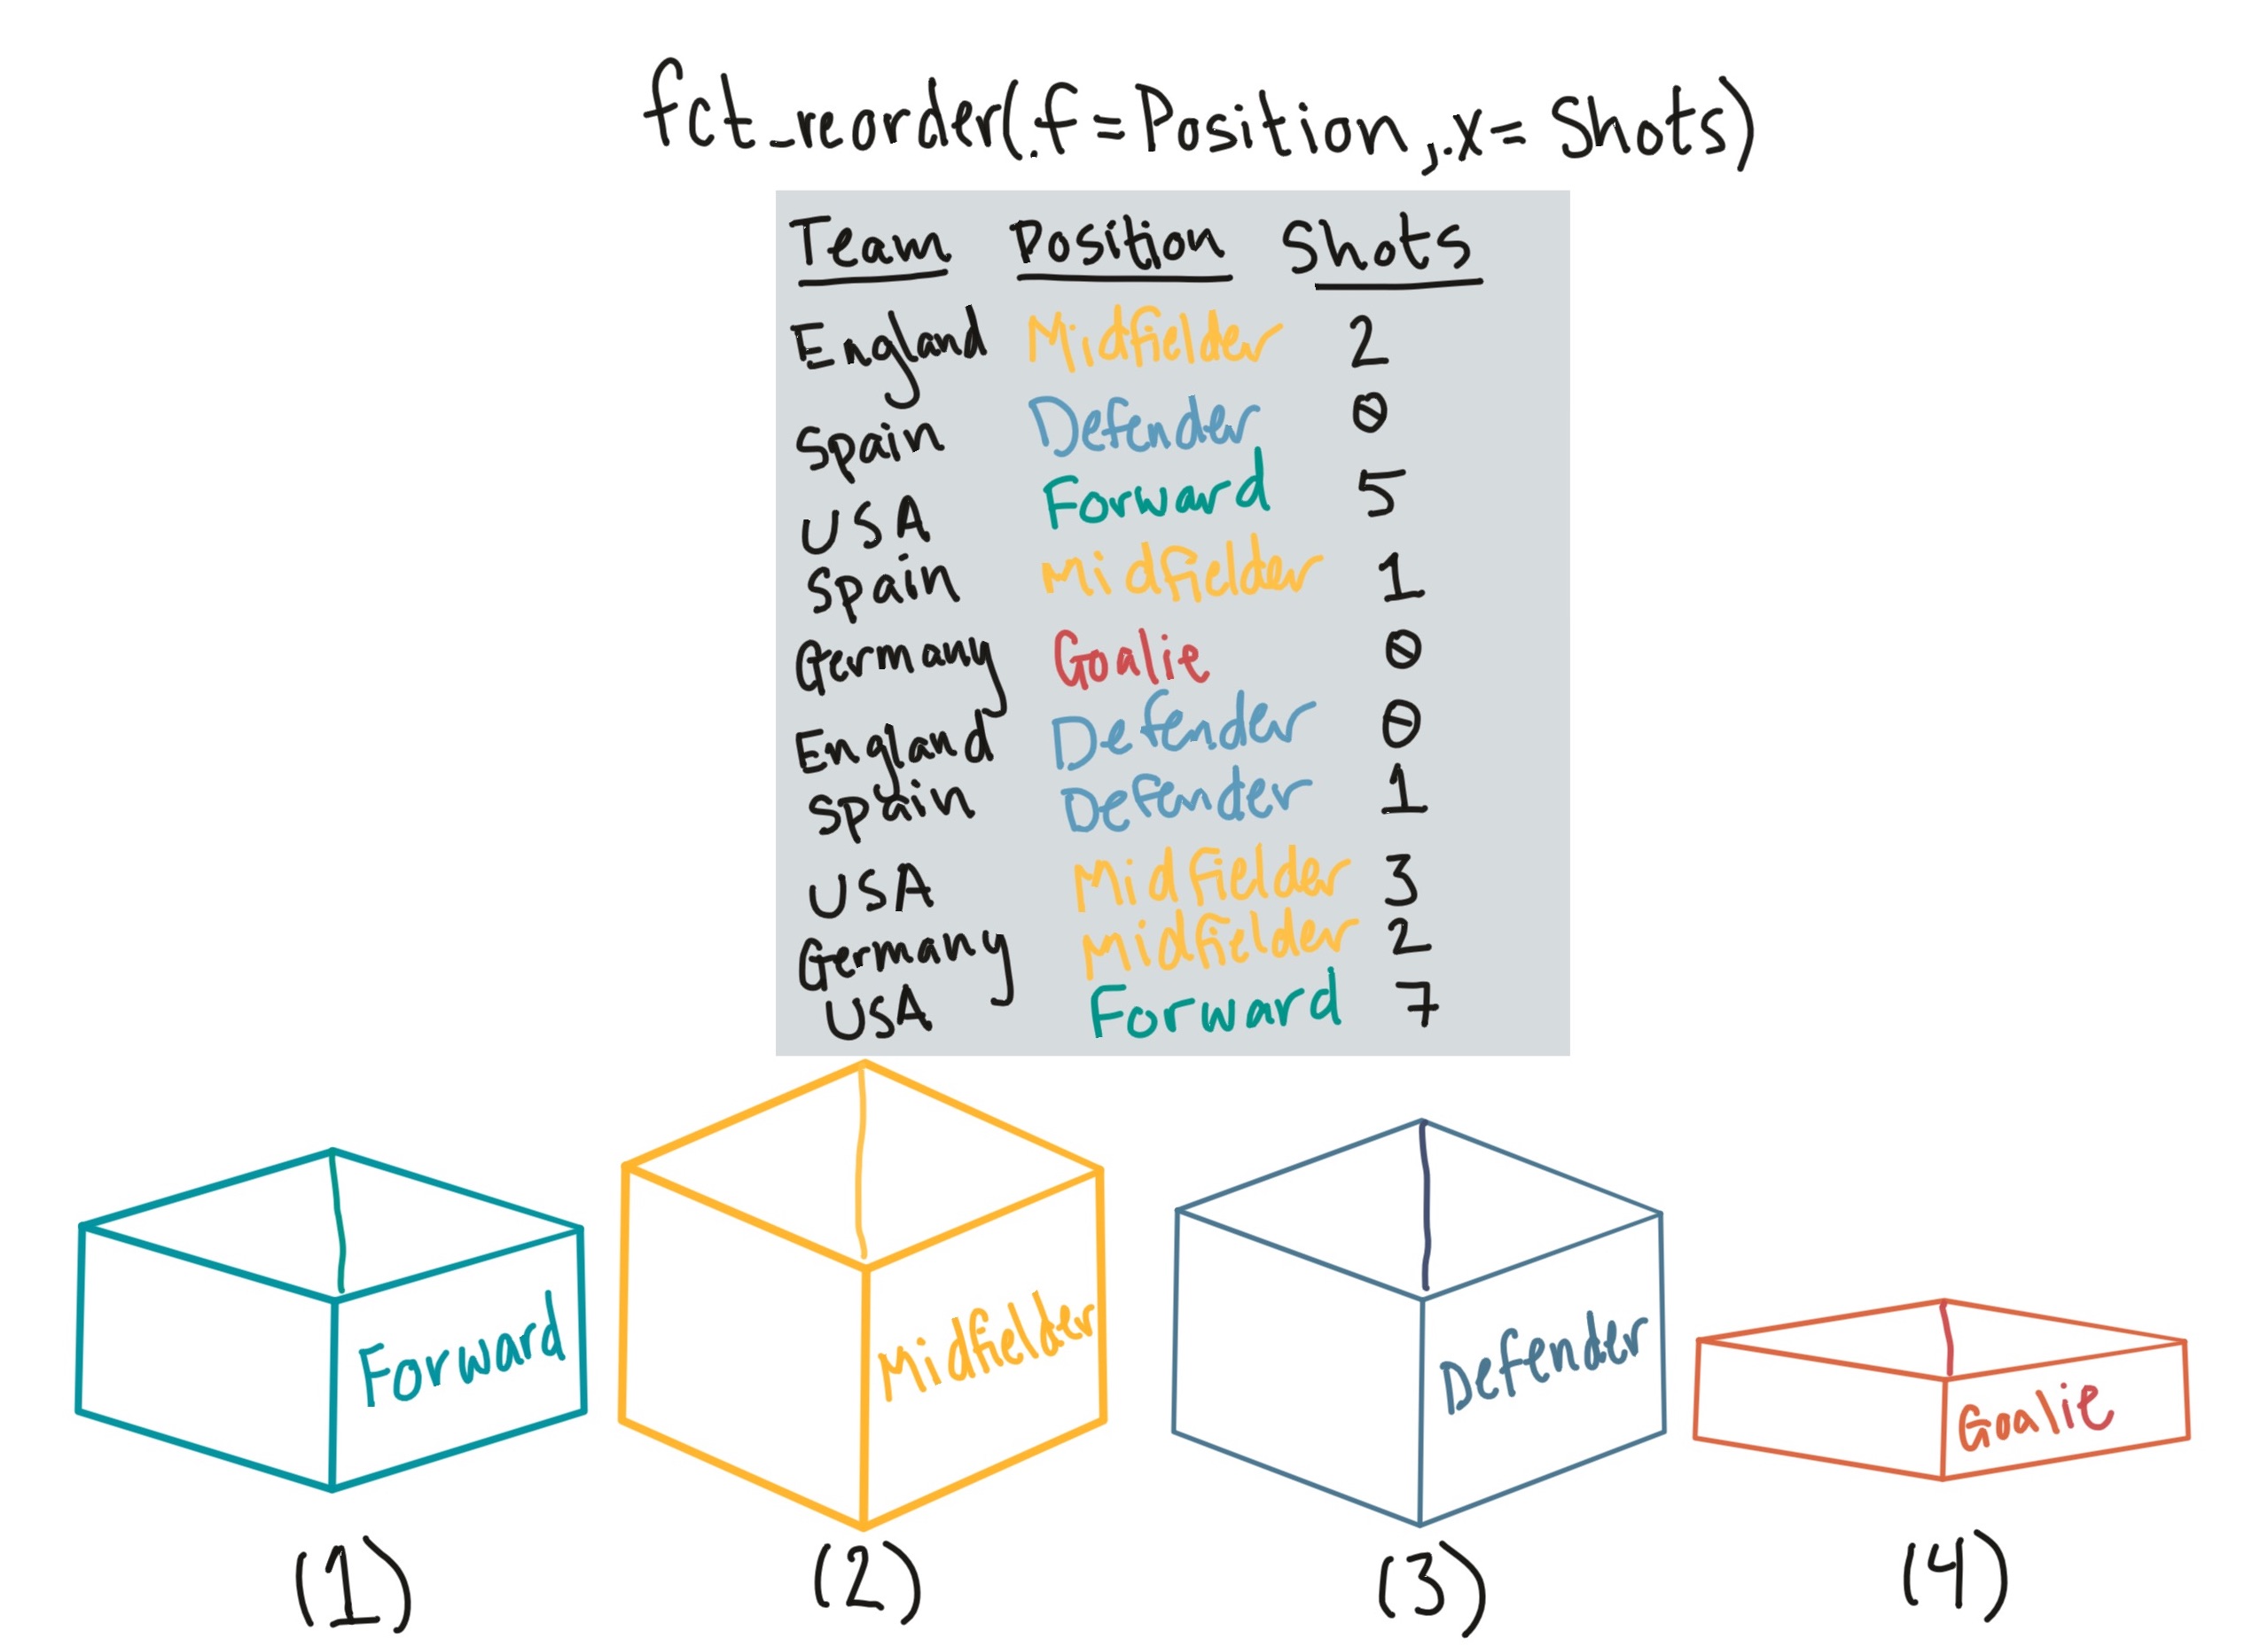 fct_reorder(.f=Position,.x=Shots)
Team Position Shots
England Midfielder 2
Spain Defender 0
USA Forward 5
Spain Midfielder 1
Germany Goalie 0
England Defender 0
Spain Defender 1
USA Midfielder 3
Germany Midfielder 2
USA Forward 7
Forward Midfielder Defender Goalie
(1) (2) (3) (4)